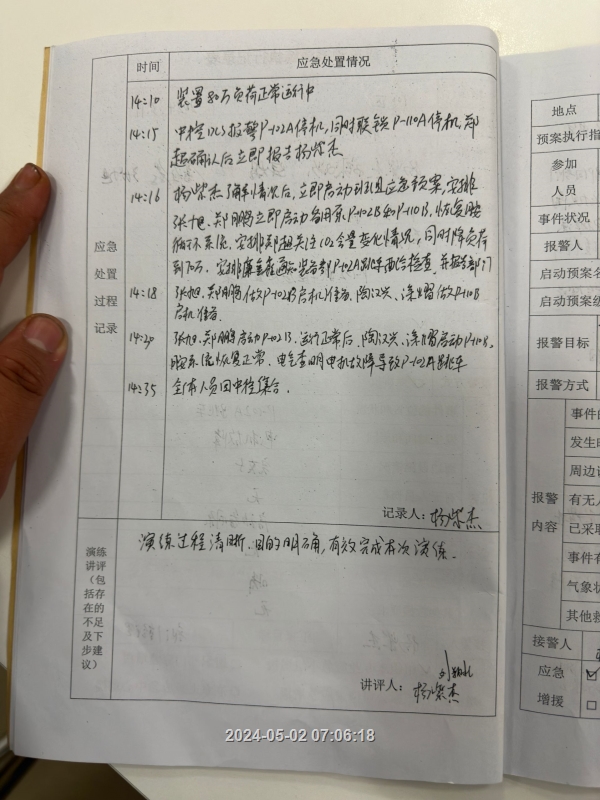 时间 应急处置情况
14:10 装置80万负荷正常运行中
14:15 中控DCS报警P-102A停机,同时联锁P-110A停机,郑
超确认后立即报告杨紫杰
14:16 杨紫杰了解情况后,立即启动应急预案,安排
张旭、郑鹏立即启动备用泵P-102B和P-110B,恢复脱
循环系统,安排郑超关注CO2含量变化情况,同时降负荷
到70万.安排 通知 P-102A跳车 检查,并报告部门
14:18 张旭、郑鹏做P-102B启机准备.陶汉兴、涂 做P-110B
启机准备.
14:20 张旭、郑鹏启动P-102B.运行正常后、陶汉兴、涂 启动P-110B,
脱 系统恢复正常.电气查明电机故障导致P-102A跳车
14:35 全体人员回中控集合.
应急
处置
过程
记录
记录人:杨紫杰
演练
讲评
(包
括存
在的
不足
及下
步建
议)
演练过程清晰.目的明确,有效完成本次演练.
讲评人:
杨紫杰
地点
预案执行指
参加
人员
事件状况
报警人
启动预案名
启动预案级
报警目标
报警方式
报警
内容
事件的
发生时
周边
有无人
已采取
事件有
气象状
其他救
接警人
应急
增援
2024-05-02 07:06:18